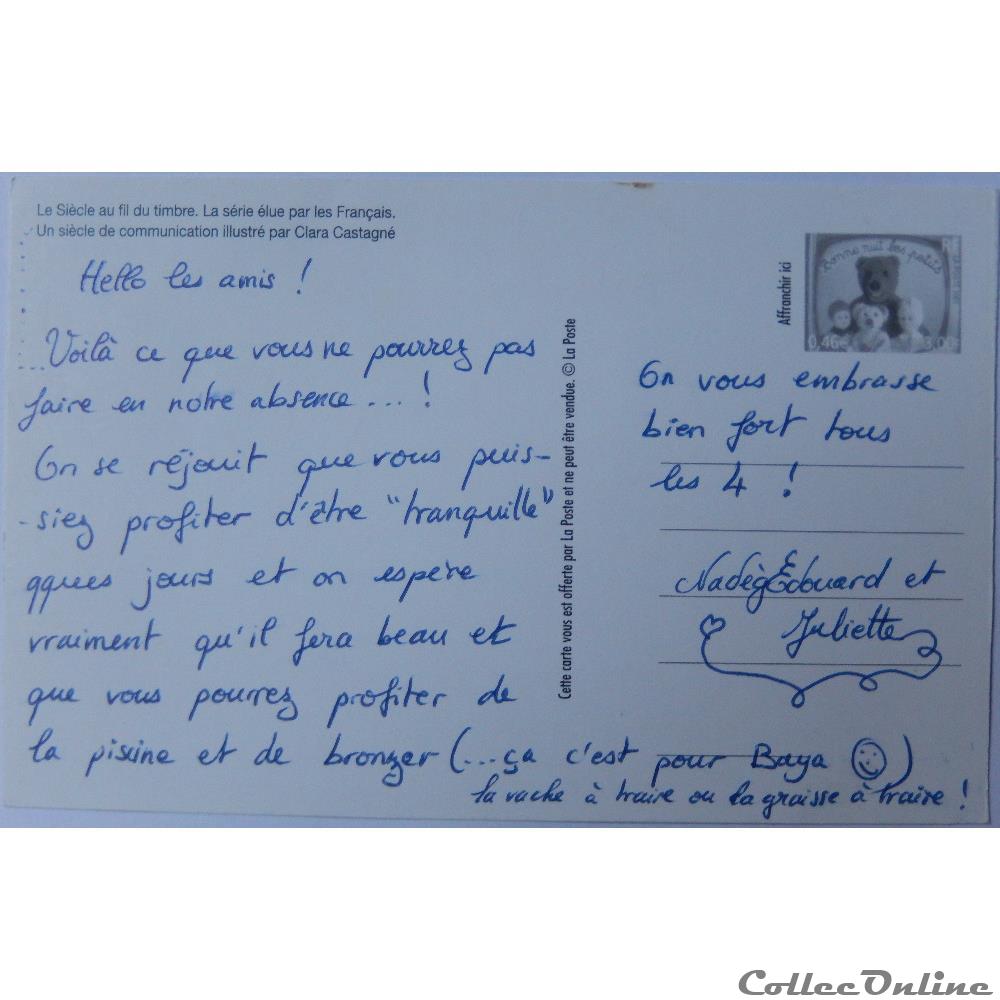 Le Siècle au fil du timbre. La série élue par les Français.
Un siècle de communication illustré par Clara Castagné
Hello les amis !
...Voilà ce que vous ne pourrez pas
faire en notre absence... !
On se réjouit que vous puis-
-siez profiter d'être "tranquille"
qques jours et on espère
vraiment qu'il fera beau et
que vous pourrez profiter de
la piscine et de bronzer (...ça c'est pour Baya ☺)
la vache à traire ou la graisse à traire !
Cette carte vous est offerte par La Poste et ne peut être vendue. © La Poste
Affranchir ici
Bonne nuit les petits
RF
0,46€
3,00F
On vous embrasse
bien fort tous
les 4 !
Nadèg Edouard et
Juliette
CollecOnline